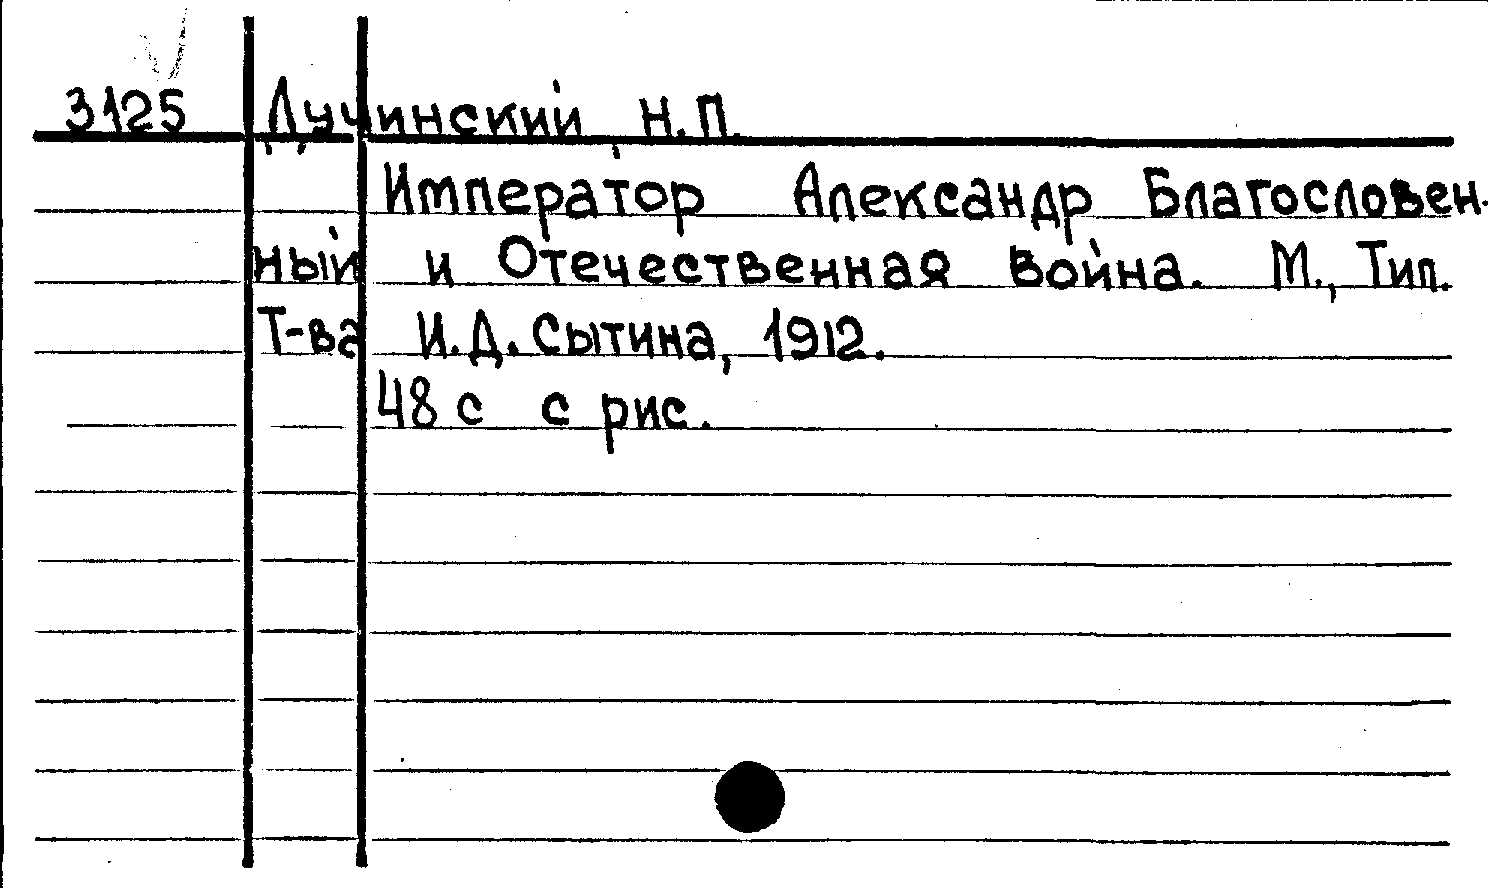 3125 Дучинский, Н.П.
Император Александр Благословен-
ный и Отечественная война. М., Тип.
Т-ва И.Д. Сытина, 1912.
48 с с рис.